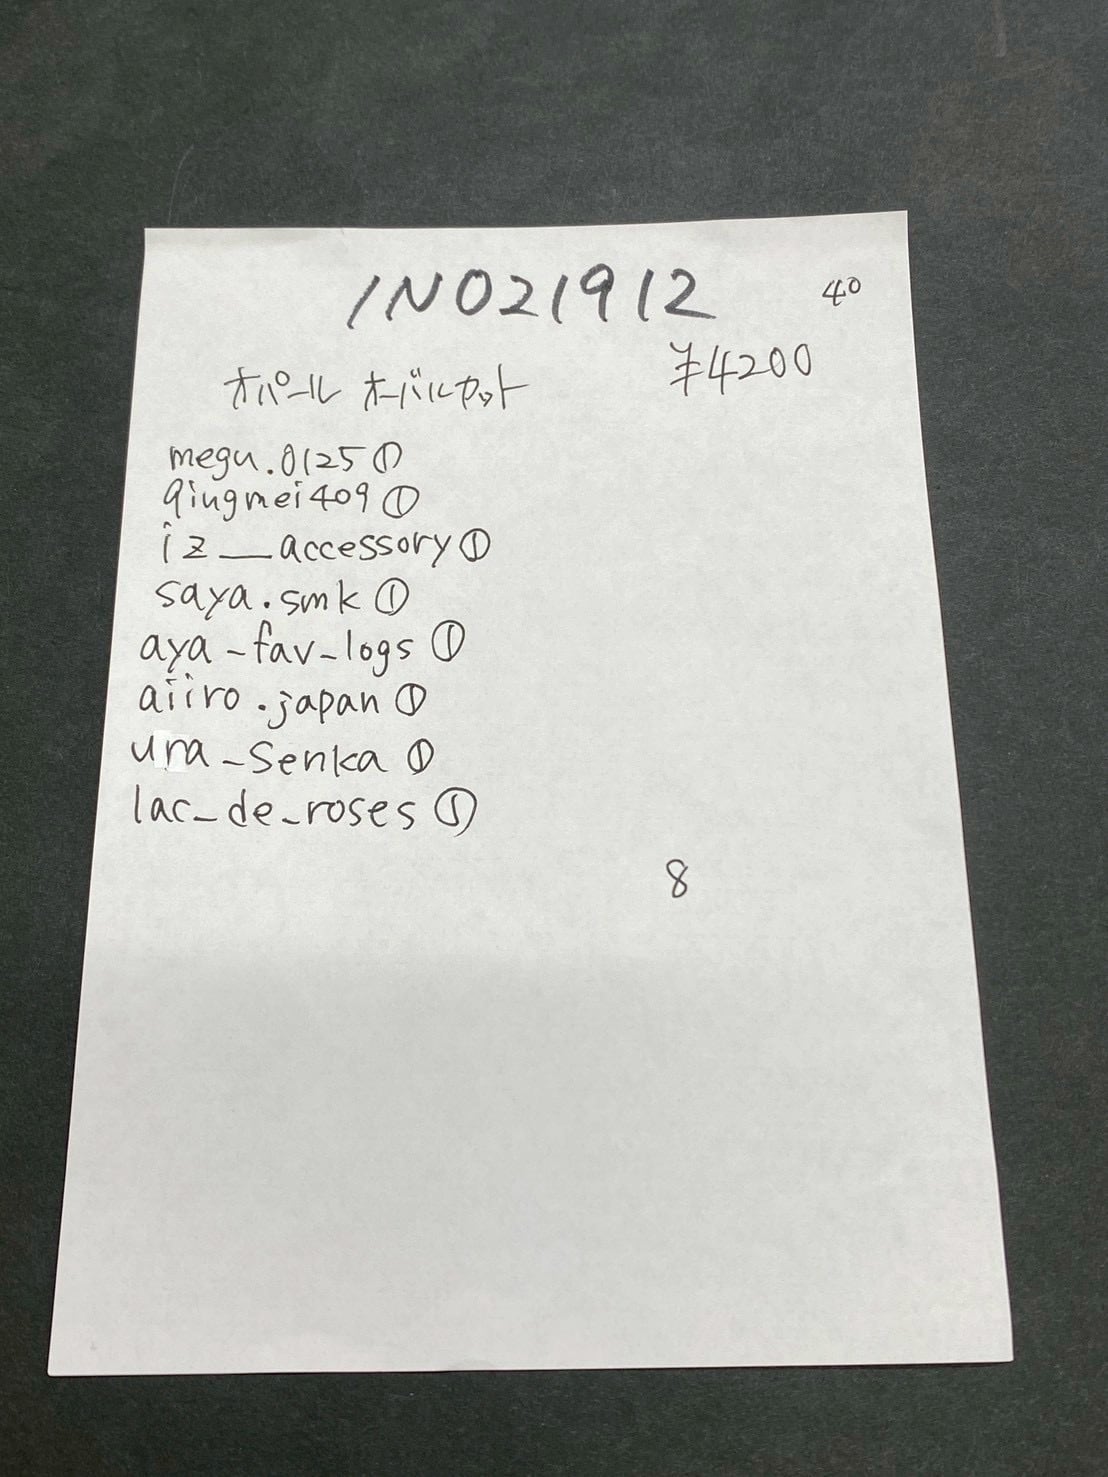 INO21912
40
¥4200
オパール オーバルカット
megu.0125①
qingmei409①
iz__accessory①
saya.smk①
aya_fav_logs①
aiiro.japan①
ura_senka①
lac_de_roses①
8